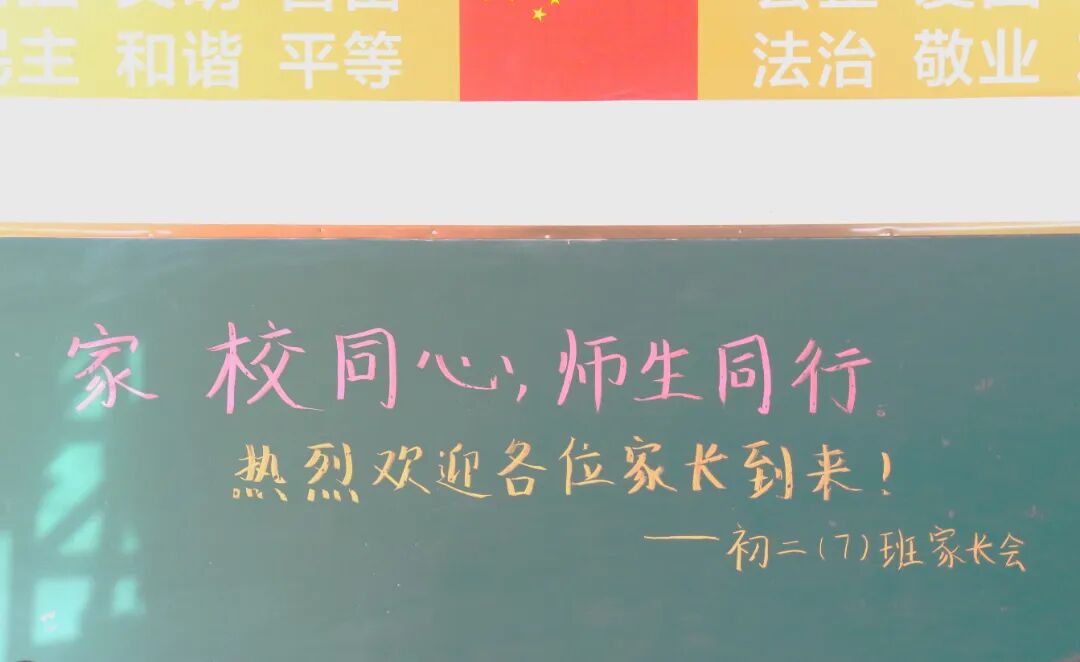 民主 和谐 平等
法治 敬业
家校同心,师生同行。
热烈欢迎各位家长到来!
——初二(7)班家长会